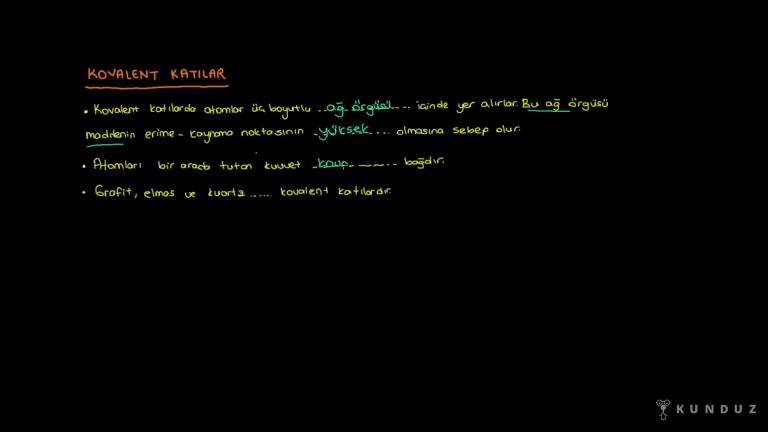 KOVALENT KATILAR
• Kovalent katılarda atomlar üç boyutlu ...ağ örgüsü.... içinde yer alırlar. Bu ağ örgüsü
maddenin erime - kaynama noktasının .yüksek.... olmasına sebep olur.
• Atomları bir arada tutan kuvvet ...kova....... bağdır.
• Grafit, elmas ve kuartz ...... kovalent katılardır.
KUNDUZ